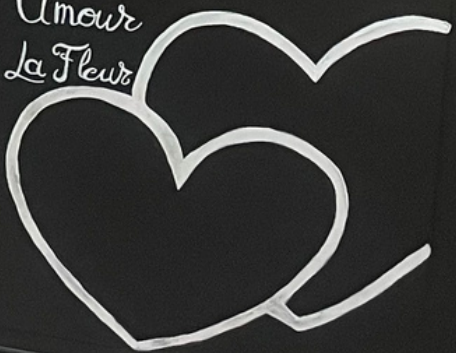 Amour
La Fleur